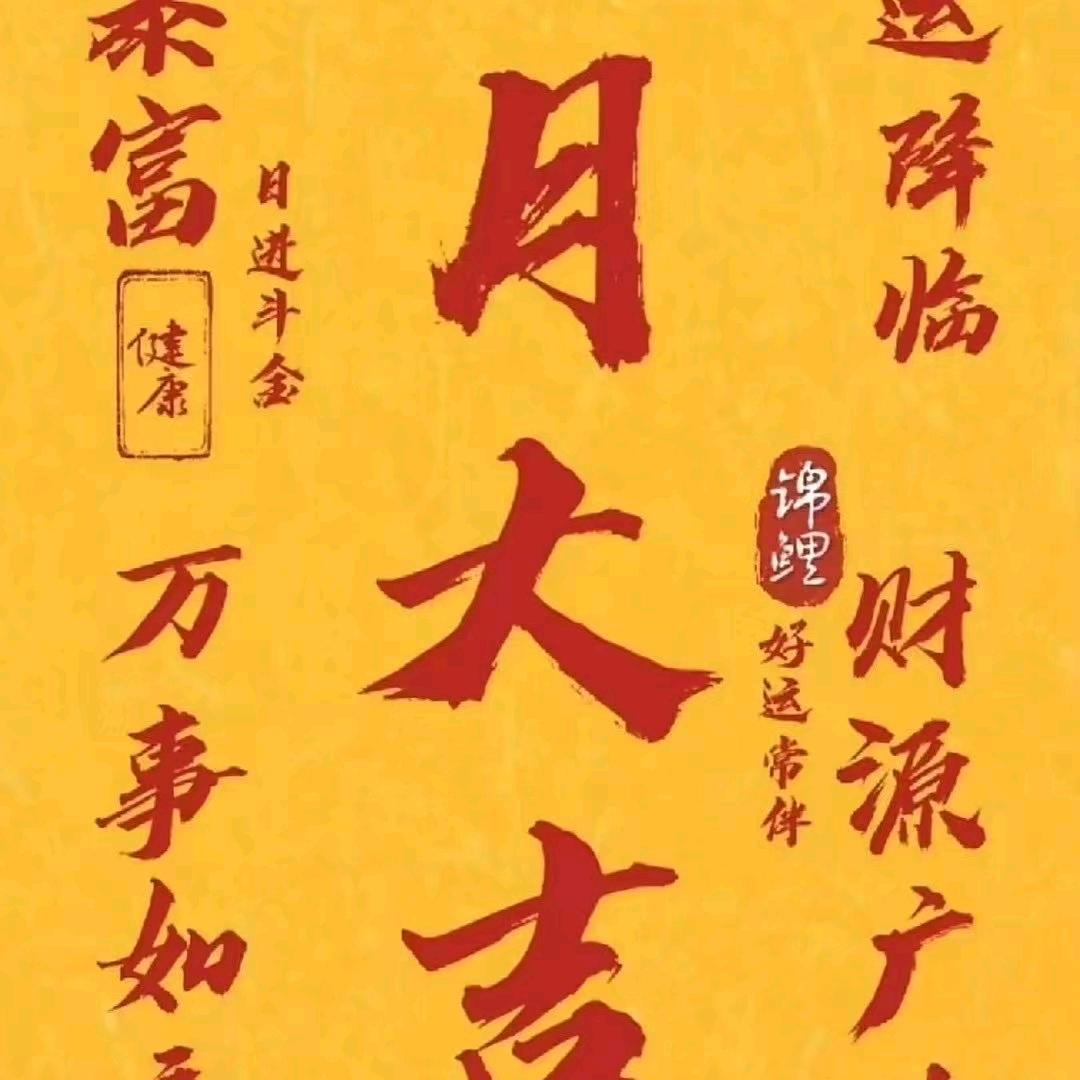 运降临
财源广
锦鲤
好运常伴
月大吉
日进斗金
富
健康
万事如